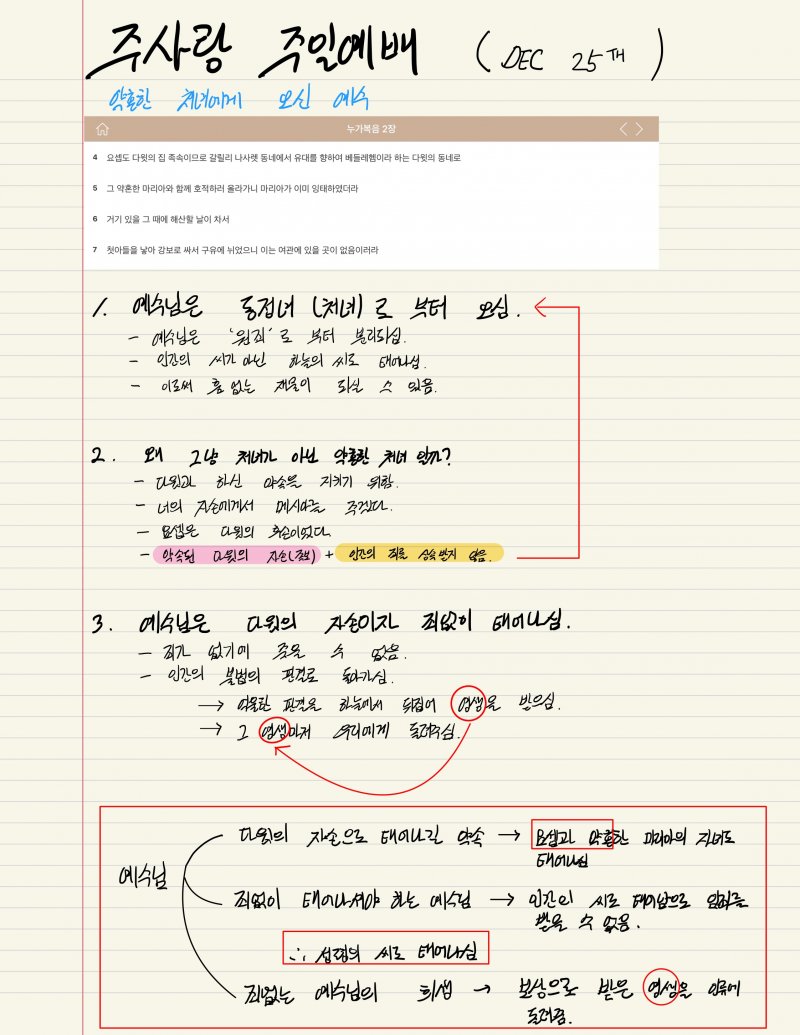 주사랑 주일예배 (DEC 25TH)
약혼한 처녀에게 오신 예수
누가복음 2장
4 요셉도 다윗의 집 족속이므로 갈릴리 나사렛 동네에서 유대를 향하여 베들레헴이라 하는 다윗의 동네로
5 그 약혼한 마리아와 함께 호적하러 올라가니 마리아가 이미 잉태하였더라
6 거기 있을 그 때에 해산할 날이 차서
7 첫아들을 낳아 강보로 싸서 구유에 뉘었으니 이는 여관에 있을 곳이 없음이러라
1. 예수님은 동정녀 (처녀)로 부터 오심.
- 예수님은 '원죄'로 부터 분리되심.
- 인간의 씨가 아닌 하늘의 씨로 태어나심.
- 이로써 흠 없는 제물이 되실 수 있음.
2. 왜 그냥 처녀가 아닌 약혼한 처녀 인가?
- 다윗과 하신 약속을 지키기 위함.
- 너의 자손에게서 메시아를 주겠다.
- 요셉은 다윗의 후손이었다.
- 약속된 다윗의 자손(족보) + 인간의 죄를 상속 받지 않음.
3. 예수님은 다윗의 자손이자 죄없이 태어나심.
- 죄가 없기에 죽을 수 없음.
- 인간의 불법의 판결로 돌아가심.
→ 억울한 판결을 하늘에서 뒤집어 영생을 받으심.
→ 그 영생마저 우리에게 돌려주심.
예수님
다윗의 자손으로 태어나길 약속 → 요셉과 약혼한 마리아의 자녀로
태어나심
죄없이 태어나셔야 하는 예수님 → 인간의 씨로 태어남으로 원죄를
받을 수 없음.
∴ 성령의 씨로 태어나심
죄없는 예수님의 희생 → 보상으로 받은 영생을 인류에
돌려줌.